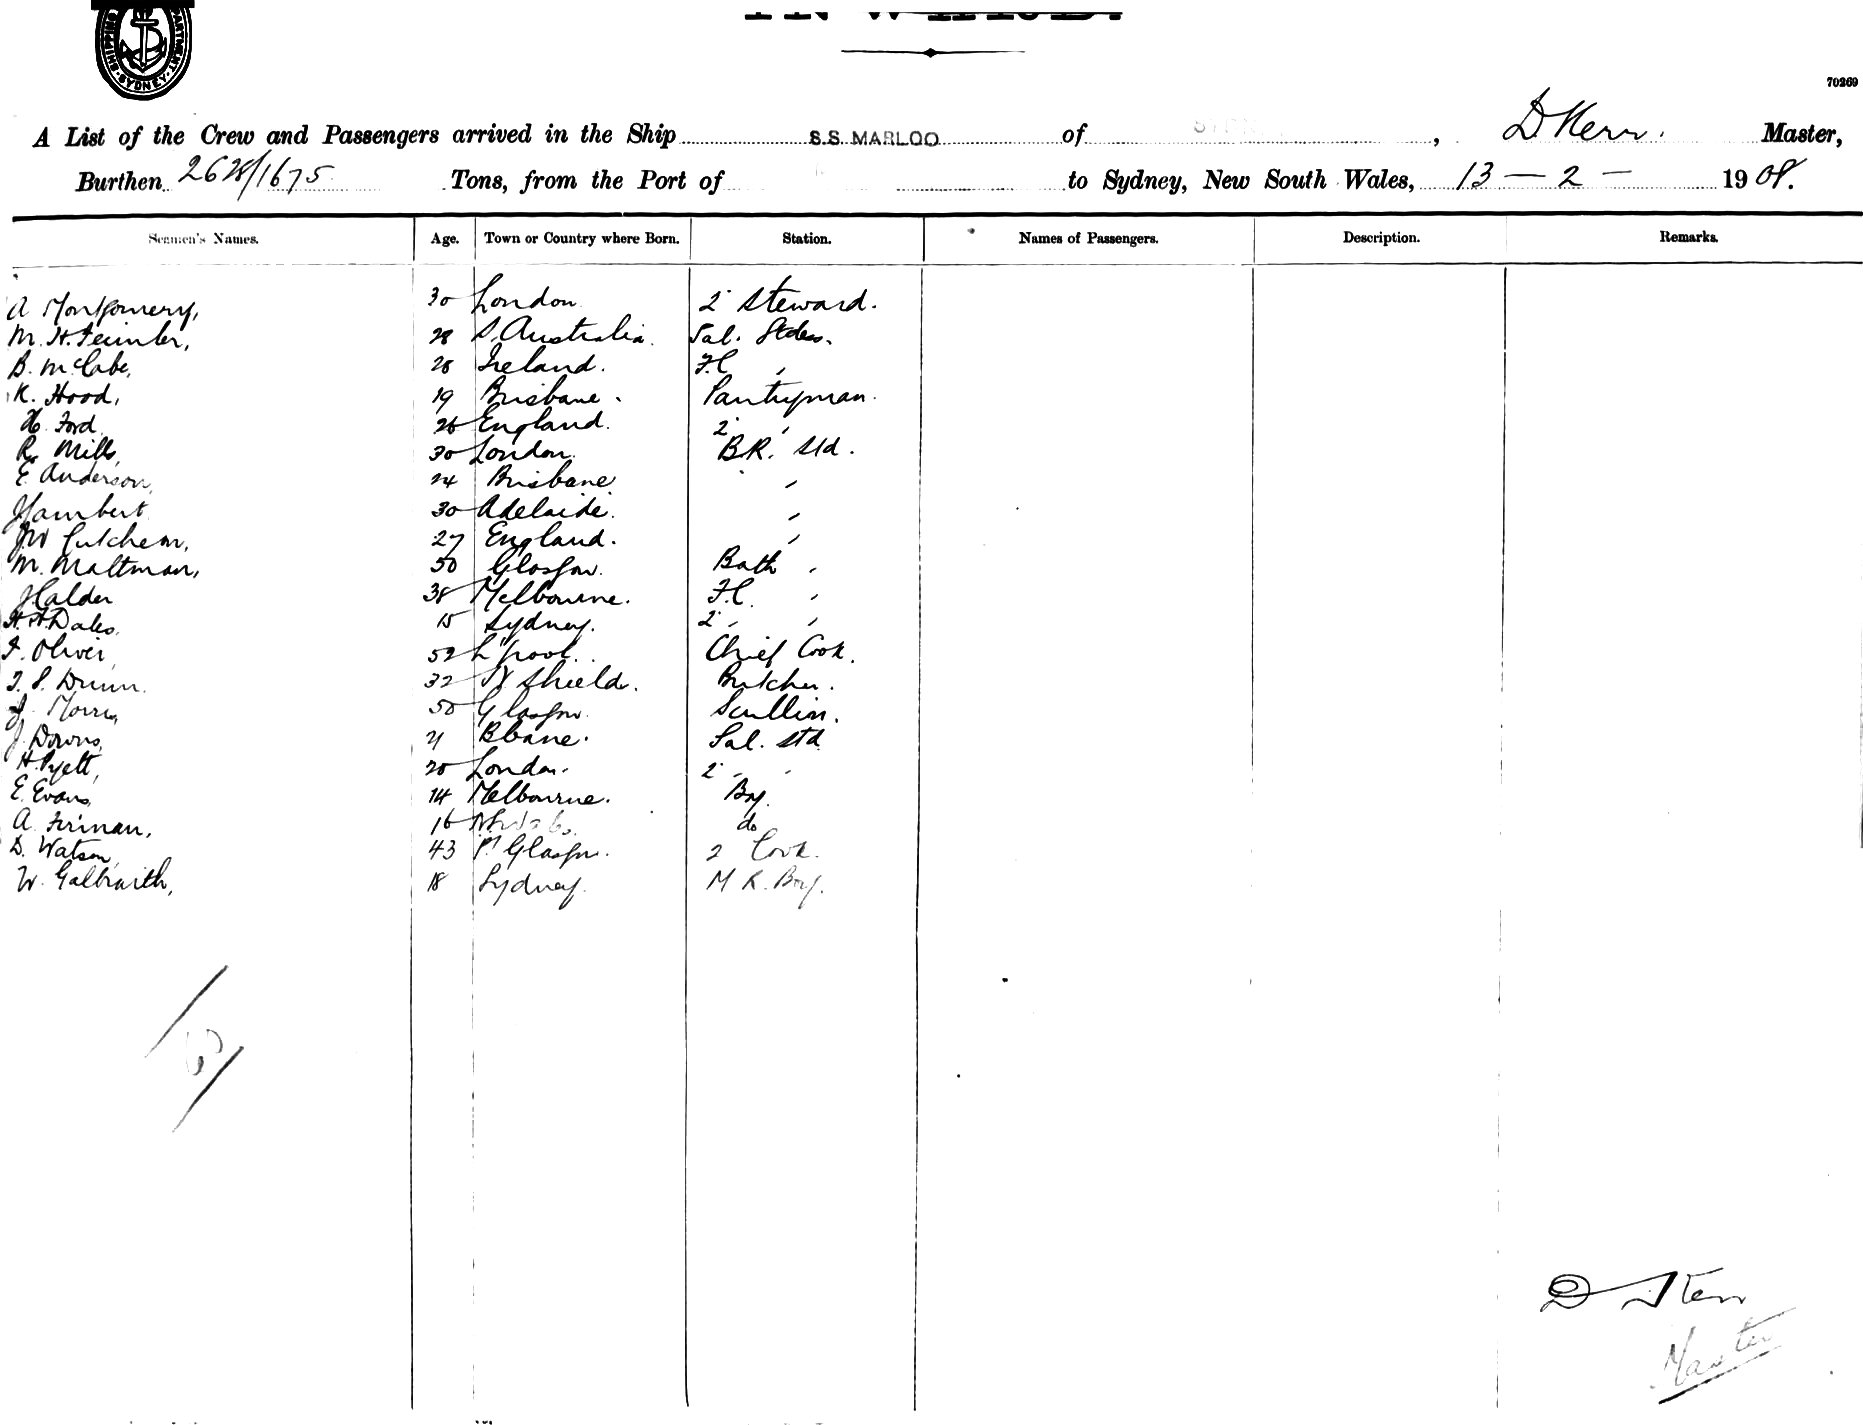 SHIPPING SYDNEY
INWARD.
70269
A List of the Crew and Passengers arrived in the Ship S.S. MARLOO of SYDNEY, D Kerr. Master,
Burthen 2628/1675 Tons, from the Port of to Sydney, New South Wales, 13 - 2 - 1908.
Seamen's Names. Age. Town or Country where Born. Station. Names of Passengers. Description. Remarks.
A Montgomery, 30 London 2" Steward.
M. H. 28 S. Australia. Sal. Stdess.
B. McCabe, 28 Ireland. F.C "
K. Hood, 19 Brisbane. Pantryman.
H. Ford 26 England. 2" "
R. Mills, 30 London. B.R. Std.
E Anderson, 24 Brisbane "
J Lambert 30 Adelaide. "
JW 27 England. "
M. Maltman, 50 Glasgow. Bath "
J Calder 38 Melbourne. F.C. "
H. A. Dales, 15 Sydney. 2" "
F. Oliver, 52 L'pool. Chief Cook.
T. S. Dunn. 32 N Shields. Butcher.
J. Morris, 50 Glasgow. Scullion.
J. Downs, 21 Bbane. Sal. Std
H. Pyett, 20 London. 2" "
E. Evans, 14 Melbourne. Boy.
A. Firman, 16 do
D. Watson, 43 Pt Glasgow. 2 Cook.
W. Galbraith, 18 Sydney. M R. Boy.
D Kerr
Master